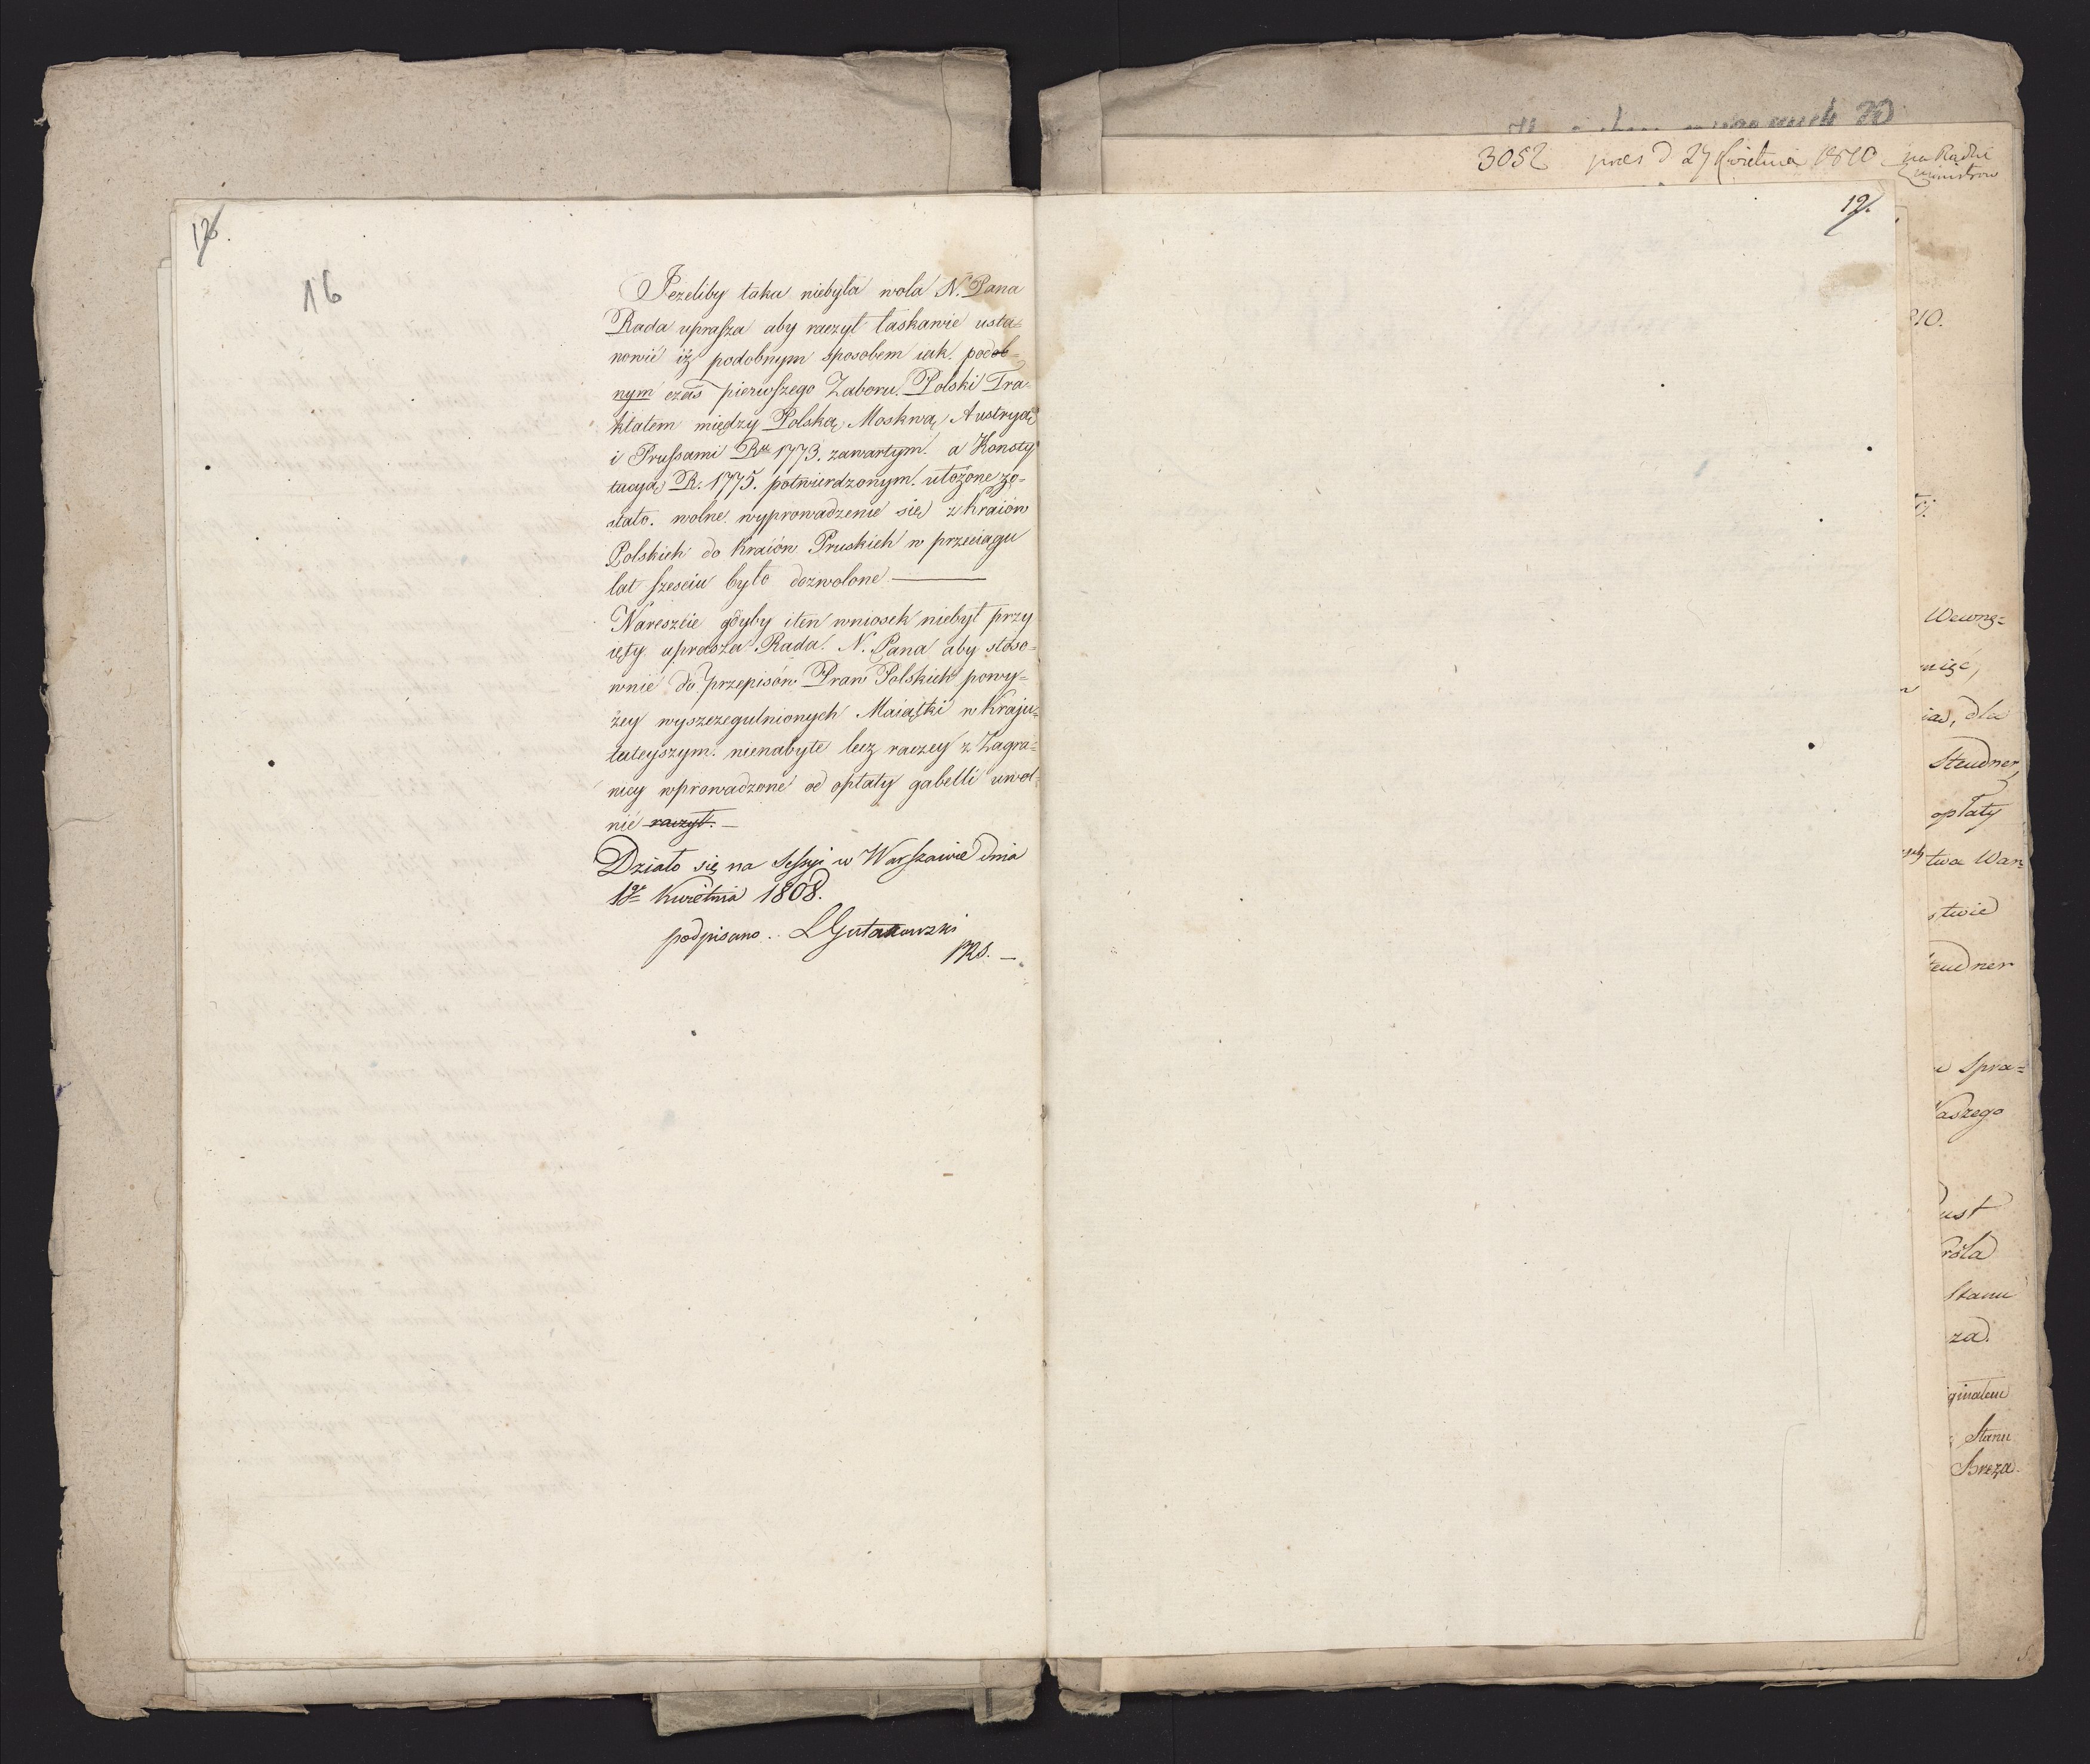 16
Jezeliby taka niebyła wola N. Pana
Rada uprasza aby raczył łaskawie usta=
nowić iż podobnym sposobem iak. podob=
nym czas pierwszego Zaboru. Polski Tra=
ktatem między Polską, Moskwą, Austryą,
i Prussami Rku 1773. zawartym. a Konsty
tucyą, R. 1775. potwierdzonym. ułożone zo=
stało. wolne. wyprowadzenie się, z Kraiów
Polskich do Kraiów Pruskich w przeciągu
lat sześciu było dozwolone.
Nareszcie gdyby i ten wniosek niebył przy
ięty uprasza Rada. N. Pana aby stoso=
wnie do przepisów Praw Polskich powy=
żey wyszczegulnionych Maiątki w Kraju=
tuteyszym. nienabyte lecz raczey z Zagra=
nicy wprowadzone od opłaty gabelli uwol=
nić raczył. —
Działo się na Sessyi w Warszawie dnia
1go Kwietnia 1808.
podpisano .. LGutakowski
PRS. —
3052 pres d 27 Kwietnia 1810 na Radzie
Ministrow
19.
210.
Wewnę=
dla
Steudner,
opłaty
twa War
stwie
teudner
Spra=
aszego
ust
róla
Stanu
za.
ginałem
Stanu
Breza.